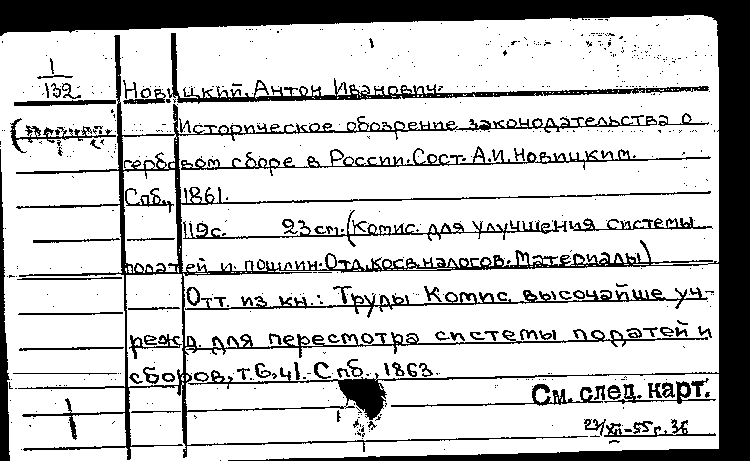 1
132 Новицкий, Антон Иванович.
Историческое обозрение законодательства о
гербовом сборе в России. Сост. А.И. Новицким.
Спб., 1861.
119 с. 23 см. (Комис. для улучшения системы
податей и пошлин. Отд. косв. налогов. Материалы)
Отт. из кн.: Труды Комис. высочайше уч-
режд. для пересмотра системы податей и
сборов, т. 6, ч1. Спб., 1863.
См. след. карт.